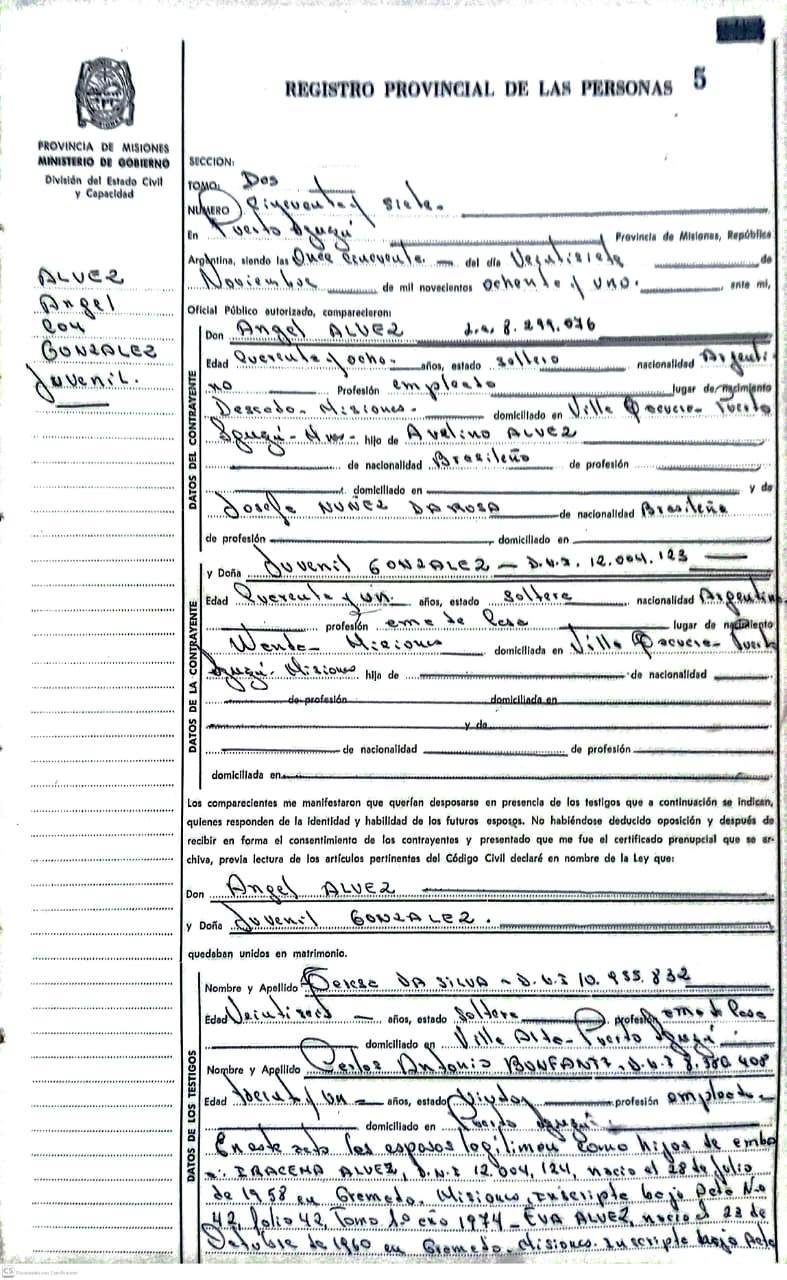 REGISTRO PROVINCIAL DE LAS PERSONAS 5
PROVINCIA DE MISIONES
MINISTERIO DE GOBIERNO
División del Estado Civil
y Capacidad
ALVEZ
Angel
con
GONZALEZ
Juvenil.
SECCION:
TOMO: Dos
NUMERO Cincuenta y siete.
En Puerto Iguazú Provincia de Misiones, República
Argentina, siendo las Once cincuenta. del día Veintisiete de
Noviembre de mil novecientos ochenta y uno. ante mi,
Oficial Público autorizado, comparecieron:
DATOS DEL CONTRAYENTE
Don Angel ALVEZ L.E. 8.299.076
Edad Cuarenta y ocho. años, estado soltero nacionalidad Argenti
no Profesión empleado lugar de nacimiento
Misiones. domiciliado en Villa Puerto
Iguazú - Mnes- hijo de Avelino ALVEZ
de nacionalidad Brasileño de profesión
domiciliado en y de
Josefa NUÑEZ DA ROSA de nacionalidad Brasileña
de profesión domiciliado en
DATOS DE LA CONTRAYENTE
y Doña Juvenil GONZALEZ - D.N.I. 12.004.123
Edad Cuarenta y un. años, estado soltera nacionalidad Argentina
profesión ama de Casa lugar de nacimiento
Misiones domiciliada en Villa Puerto
Iguazú. Misiones hija de de nacionalidad
de profesión domiciliada en
y de
de nacionalidad de profesión
domiciliada en
Los comparecientes me manifestaron que querían desposarse en presencia de los testigos que a continuación se indican,
quienes responden de la identidad y habilidad de los futuros esposos. No habiéndose deducido oposición y después de
recibir en forma el consentimiento de los contrayentes y presentado que me fue el certificado prenupcial que se ar-
chiva, previa lectura de los artículos pertinentes del Código Civil declaré en nombre de la Ley que:
Don Angel ALVEZ
y Doña Juvenil GONZALEZ.
quedaban unidos en matrimonio.
DATOS DE LOS TESTIGOS
Nombre y Apellido DA SILVA - D.N.I 10.955.832
Edad años, estado soltera profesión ama de Casa
domiciliado en Villa Alta - Puerto Iguazú.
Nombre y Apellido Carlos Antonio BONFANTI. D.N.I 8.380.408
Edad Treinta y un años, estado Viudo profesión empleado
domiciliado en Puerto Iguazú.
En este acto los esposos legitiman como hijos de ambo
s: IRACEMA ALVEZ, D.N.I 12.004.124, nacio el 28 de julio
de 1958 en Misiones, inscripta bajo Acta Nº
42, folio 42, Tomo 1º año 1974 - EVA ALVEZ, nacio el 23 de
Octubre de 1960 en Misiones. Inscripta bajo Acta
CS